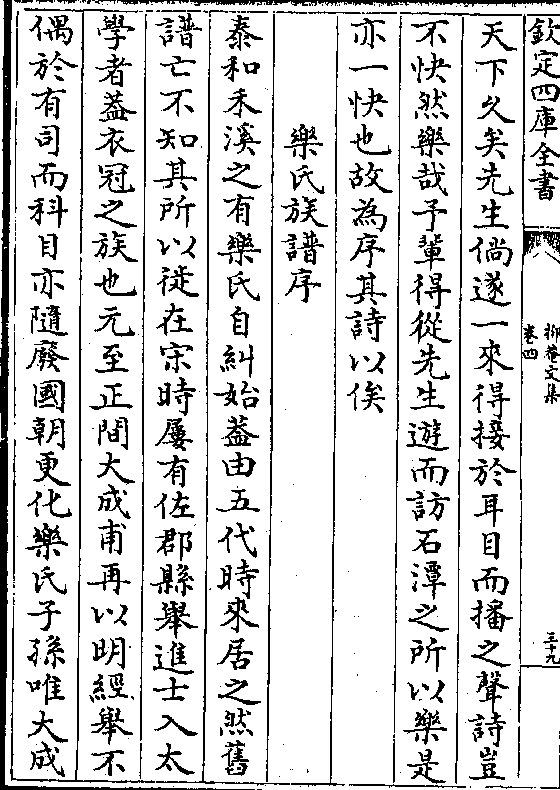 欽定四庫全書
抑菴文集
卷四
三十九
天下久矣先生倘遂一來得接於耳目而播之聲詩豈
不快然樂哉予輩得從先生遊而訪石潭之所以樂是
亦一快也故為序其詩以俟
樂氏族譜序
泰和禾溪之有樂氏自糾始葢由五代時來居之然舊
譜亡不知其所以徙在宋時屢有佐郡縣舉進士入太
學者葢衣冠之族也元至正間大成甫再以明經舉不
偶於有司而科目亦隨廢國朝更化樂氏子孫唯大成